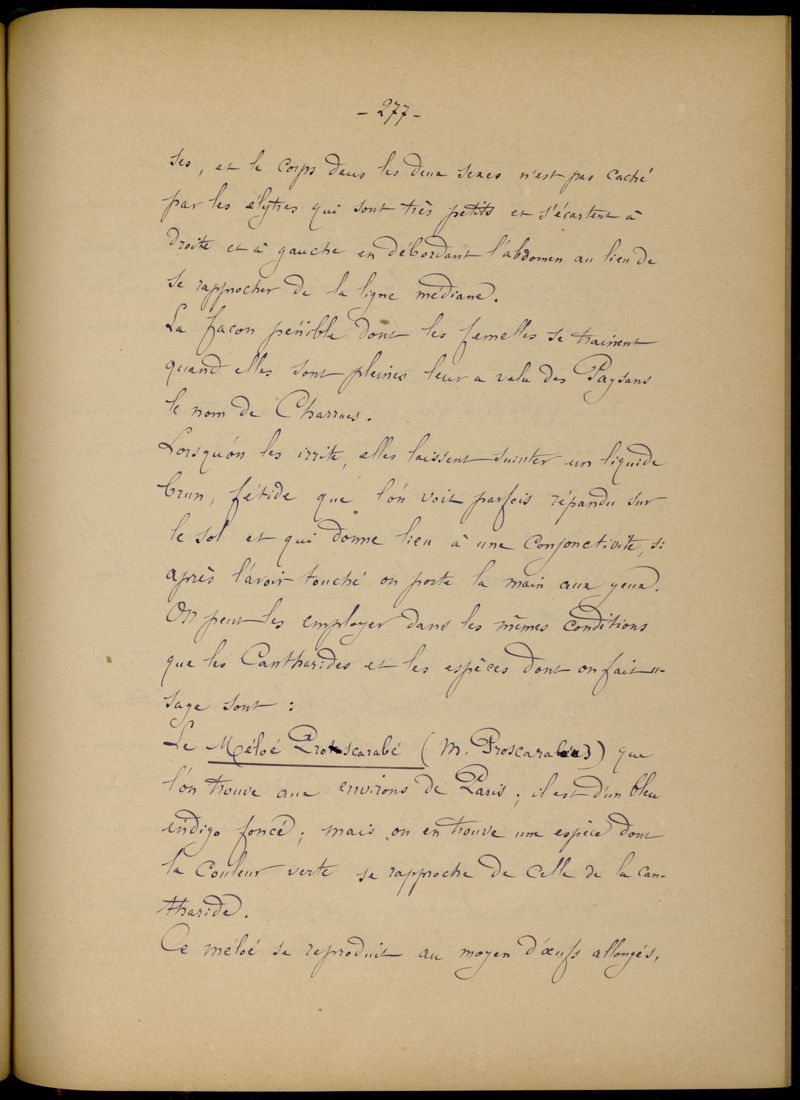 - 277 -
ses, et le corps dans les deux sexes n'est pas caché
par les élytres qui sont très petits et s'écartent à
droite et à gauche en débordant l'abdomen au lieu de
se rapprocher de la ligne mediane.
La façon pénible dont les femelles se trainent
quand elles sont pleines leur a valu des Paysans
le nom de Charrues.
Lorsqu'on les irrite, elles laissent suinter un liquide
brun, fétide que l'on voit parfois répandu sur
le sol et qui donne lieu à une conjonctivite, si
après l'avoir touché on porte la main aux yeux.
On peut les employer dans les mêmes conditions
que les Cantharides et les espèces dont on fait u-
sage sont :
Le Méloé Proscarabé (M. Proscarabeus) que
l'on trouve aux environs de Paris ; il est d'un bleu
indigo foncé ; mais on en trouve une espèce dont
la couleur verte se rapproche de celle de la can-
tharide.
Ce méloé se reproduit au moyen d'œufs allongés,